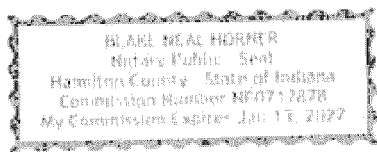 BLAKE NEAL HORNER
Notary Public - Seal
Hamilton County - State of Indiana
Commission Number NP0717878
My Commission Expires Jan 13, 2027